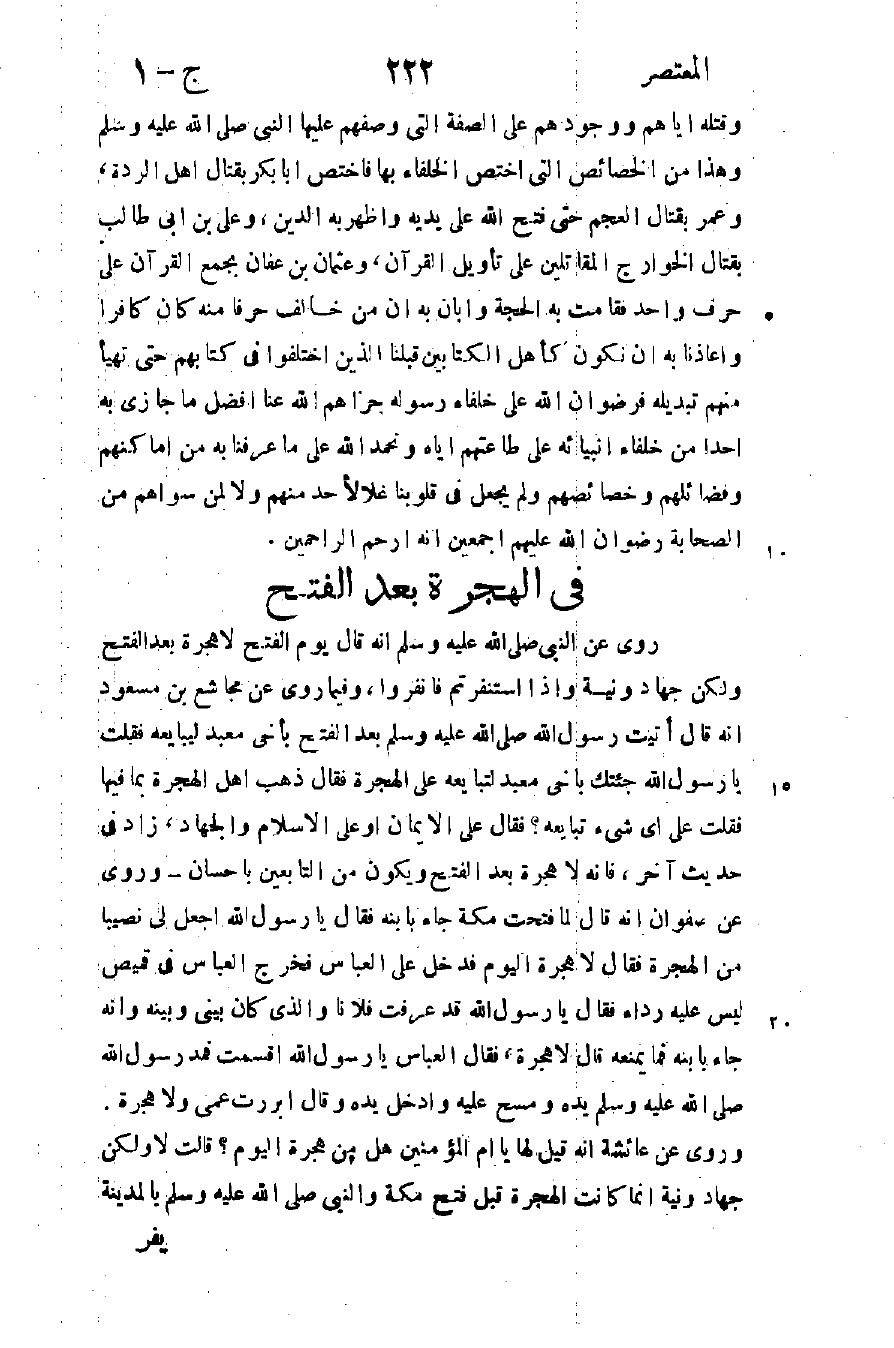 المعتصر ٢٢٢ ج - ١
وقتله اياهم ووجودهم على الصفة التى وصفهم عليها النبى صلى الله عليه وسلم
وهذا من الخصائص التى اختص الخلفاء بها فاختص ابا بكر بقتال اهل الردة،
وعمر بقتال العجم حتى فتح الله على يديه واظهر به الدين، وعلى بن ابى طالب
بقتال الخوارج المقاتلين على تأويل القرآن، وعثمان بن عفان بجمع القرآن على
حرف واحد فقامت به الحجة وابان به ان من خالف حرفا منه كان كافرا
واعاذنا به ان نكون كأهل الكتابين قبلنا الذين اختلفوا فى كتابهم حتى تهيأ
منهم تبديله فرضوان الله على خلفاء رسوله جزاهم الله عنا افضل ما جازى به
احدا من خلفاء انبيائه على طاعتهم اياه ونحمد الله على ما عرفنا به من اماكنهم
وفضائلهم وخصائصهم ولم يجعل فى قلوبنا غلا لأحد منهم ولا لمن سواهم من
الصحابة رضوان الله عليهم اجمعين انه ارحم الراحمين . ١٠
فى الهجرة بعد الفتح
روى عن النبى صلى الله عليه وسلم انه قال يوم الفتح لا هجرة بعد الفتح
ولكن جهاد ونية واذا استنفرتم فانفروا، وفيما روى عن مجاشع بن مسعود
انه قال أتيت رسول الله صلى الله عليه وسلم بعد الفتح بأخى معبد ليبايعه فقلت
يا رسول الله جئتك بأخى معبد لتبايعه على الهجرة فقال ذهب اهل الهجرة بما فيها ١٥
فقلت على اى شىء تبايعه؟ فقال على الايمان او على الاسلام والجهاد، زاد فى
حديث آخر، فانه لا هجرة بعد الفتح ويكون من التابعين باحسان - وروى
عن صفوان انه قال لما فتحت مكة جاء بابنه فقال يا رسول الله اجعل لى نصيبا
من الهجرة فقال لا هجرة اليوم فدخل على العباس فخرج العباس فى قميص
ليس عليه رداء فقال يا رسول الله قد عرفت فلانا والذى كان بينى وبينه وانه ٢٠
جاء بابنه فما يمنعه قال لا هجرة، فقال العباس يا رسول الله اقسمت فمد رسول الله
صلى الله عليه وسلم يده ومسح عليه وادخل يده وقال ابررت عمى ولا هجرة .
وروى عن عائشة انه قيل لها يا ام المؤمنين هل من هجرة اليوم؟ قالت لا ولكن
جهاد ونية انما كانت الهجرة قبل فتح مكة والنبى صلى الله عليه وسلم بالمدينة
يفر